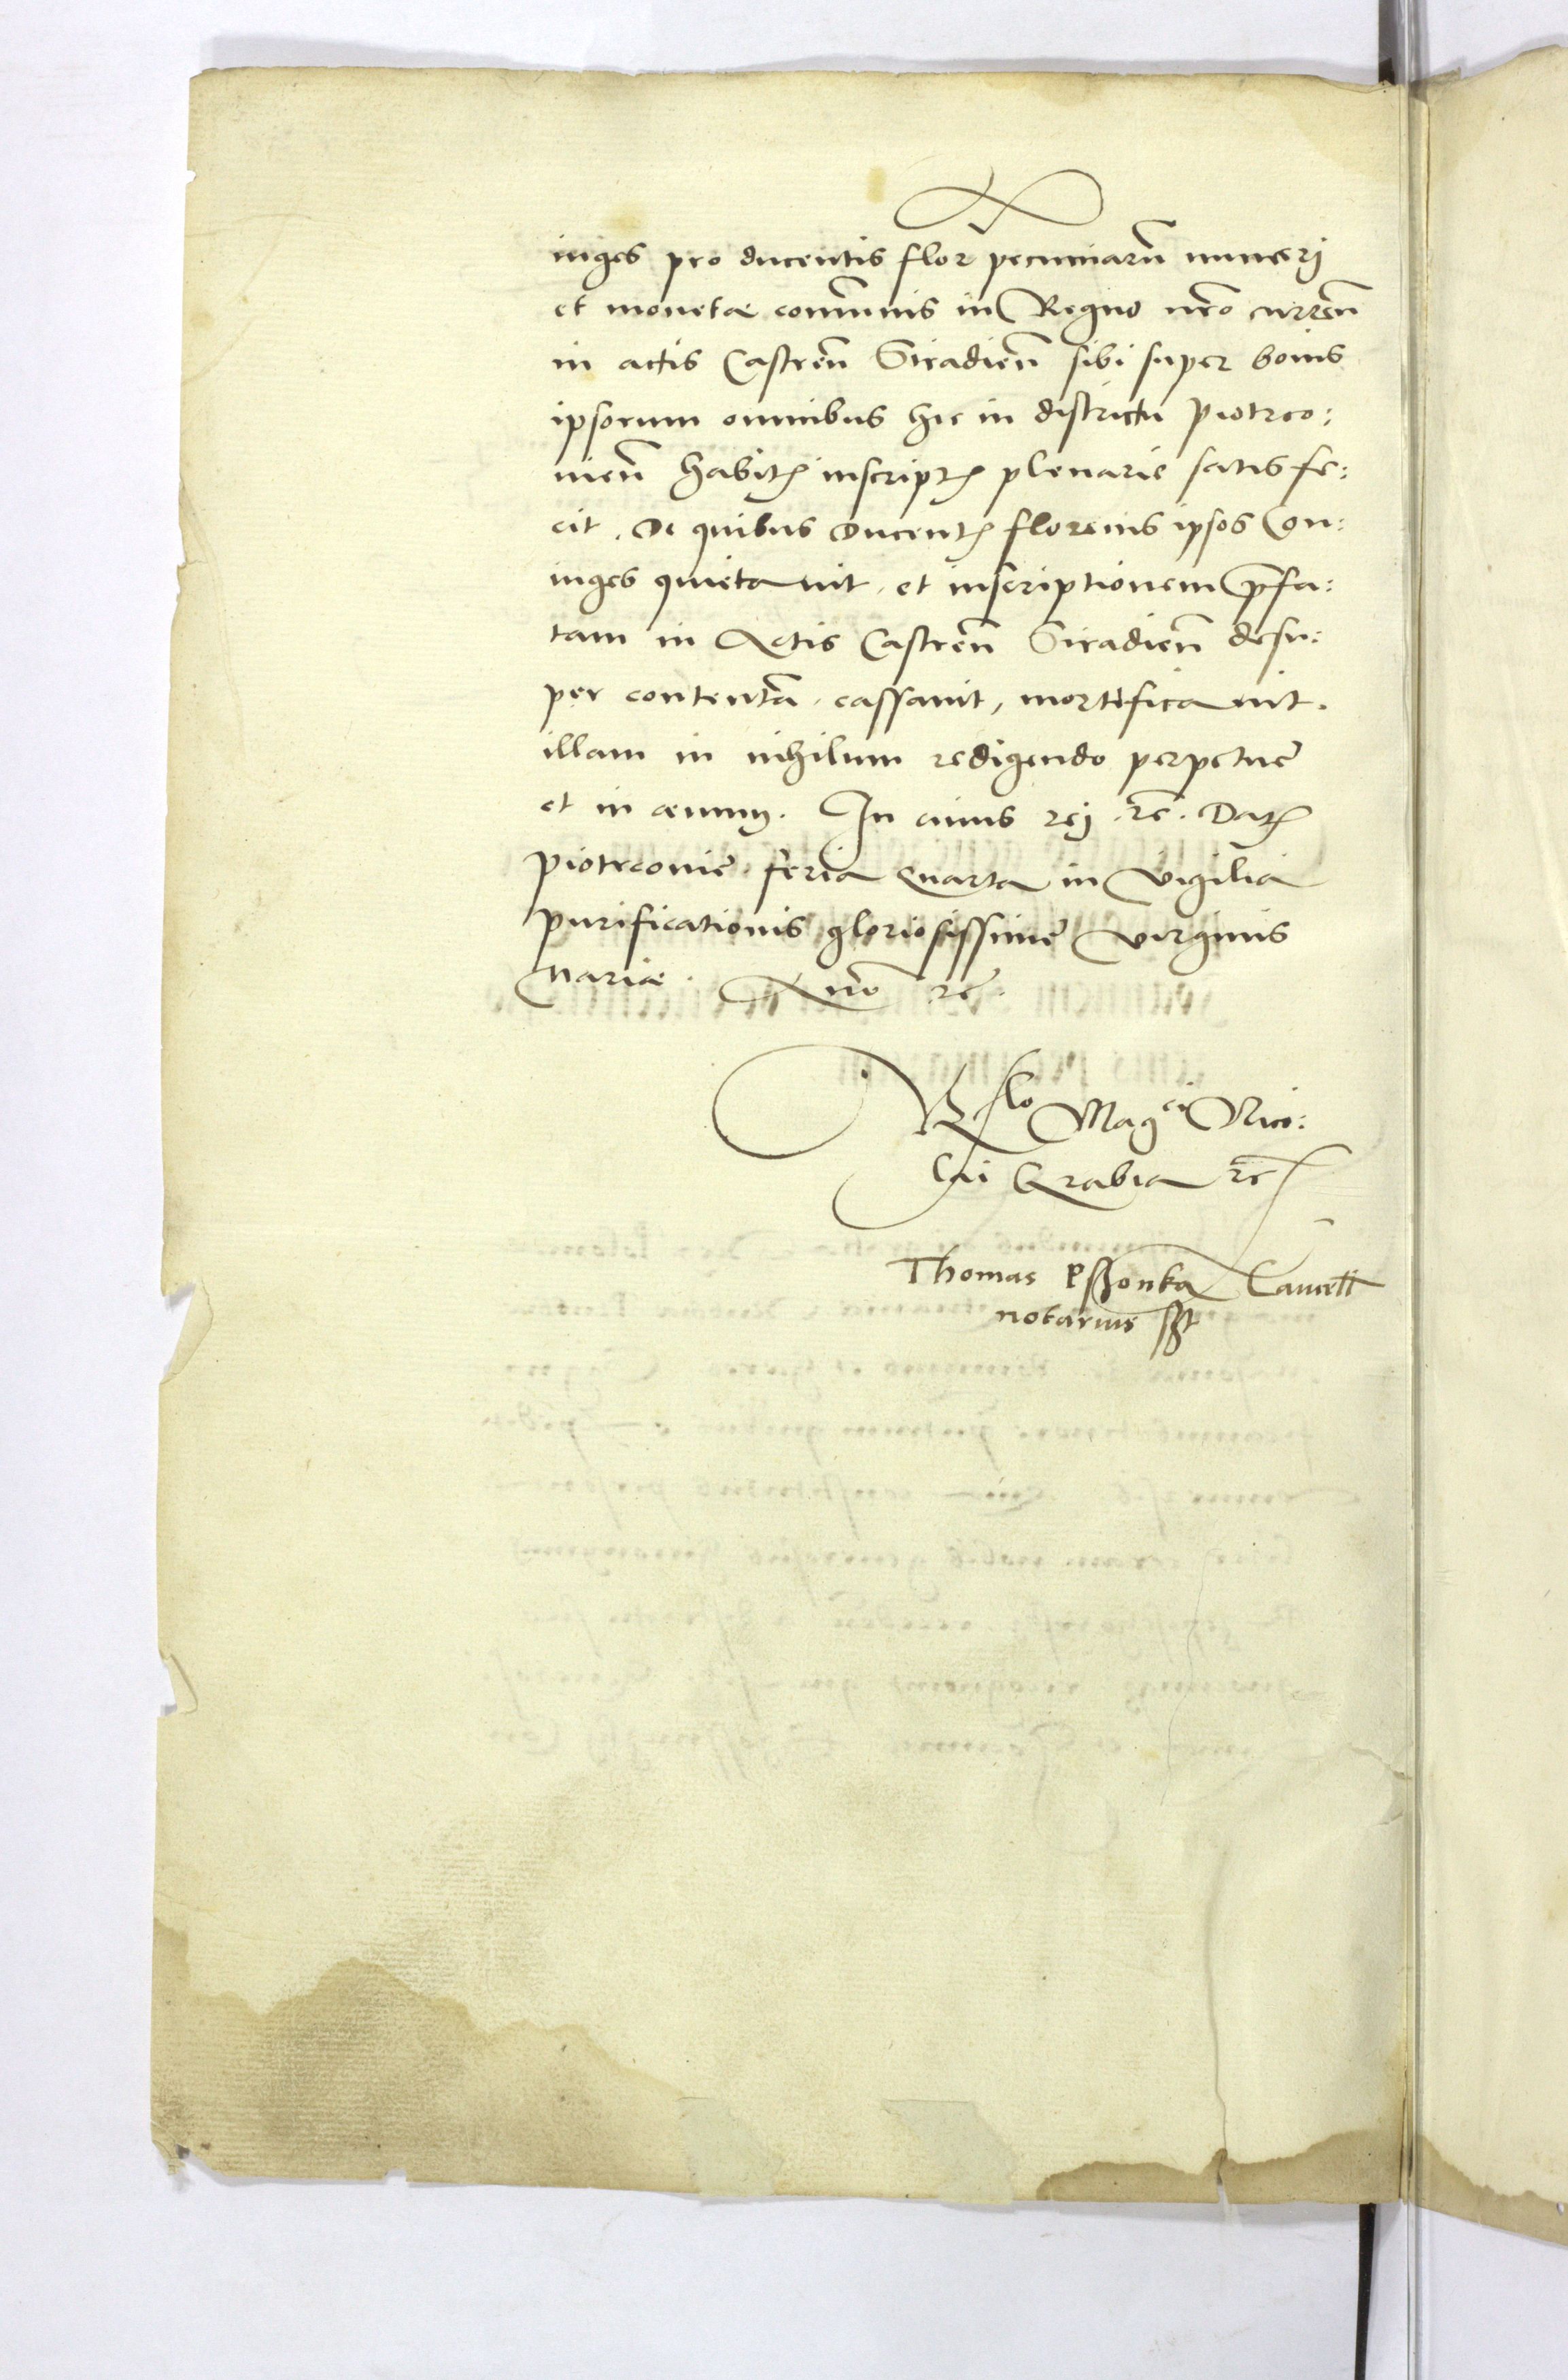 iuges pro ducentis flor pecuniarū numeri
et monetæ com̄unis in Regno nr̄o curren̄
in actis Castren̄ Siradien̄ sibi super bonis
ipsorum omnibus hic in districtu Piotrco:
nien̄ habitꝭ inscriptꝭ plenarie satisfe:
cit. De quibus Ducentꝭ florenis ipsos Con:
iuges quietauit. et inscriptionem p̄fa:
tam in Actis Castren̄ Siradien̄ desu:
per contentā. cassauit, mortificauit.
illam in nihilum redigendo perpetuę
et in æuum. In cuius rej. ꝛc̄. Datꝭ
Piotrconię feria Quarta in Vigilia
Purificationis gloriosissimę Virginis
Mariæ. Anno ꝛc̄.
Rlo Magci Nico:
lai Grabia ꝛc
Thomas Psszonka Cancell
notarius sszt